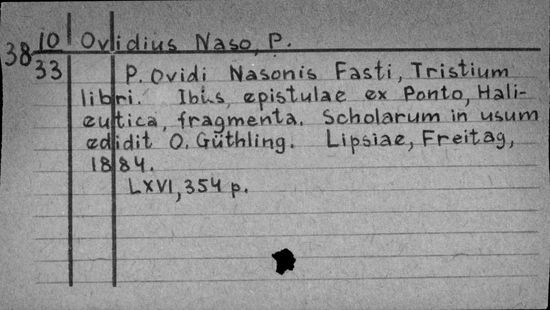 38 10/33
Ovidius Naso, P.
P. Ovidi Nasonis Fasti, Tristium
libri. Ibis, epistulae ex Ponto, Hali-
eutica, fragmenta. Scholarum in usum
edidit O. Güthling. Lipsiae, Freitag,
1884.
LXVI, 354 p.